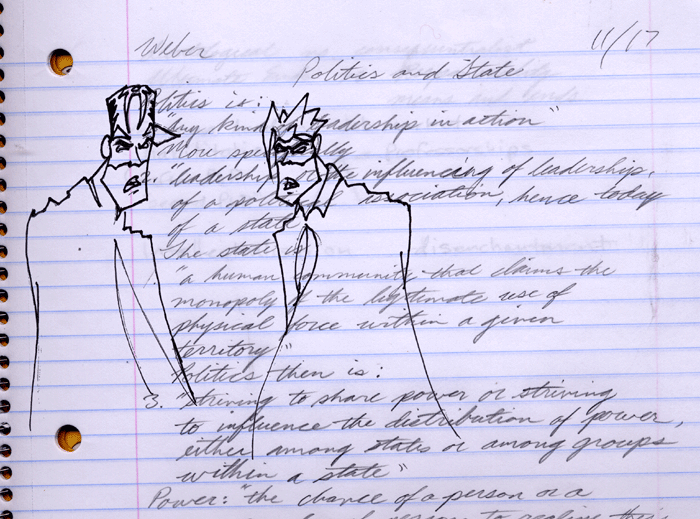 Weber 11/17
Politics and State
Politics is:
"Any kind of leadership in action"
More specifically
2. "leadership or the influencing of leadership,
of a political association, hence today
of a state"
The state is
"a human community that claims the
monopoly of the legitimate use of
physical force within a given
territory"
Politics then is:
3. "striving to share power or striving
to influence the distribution of power,
either among states or among groups
within a state"
Power: "the chance of a person or a
of persons to realize their